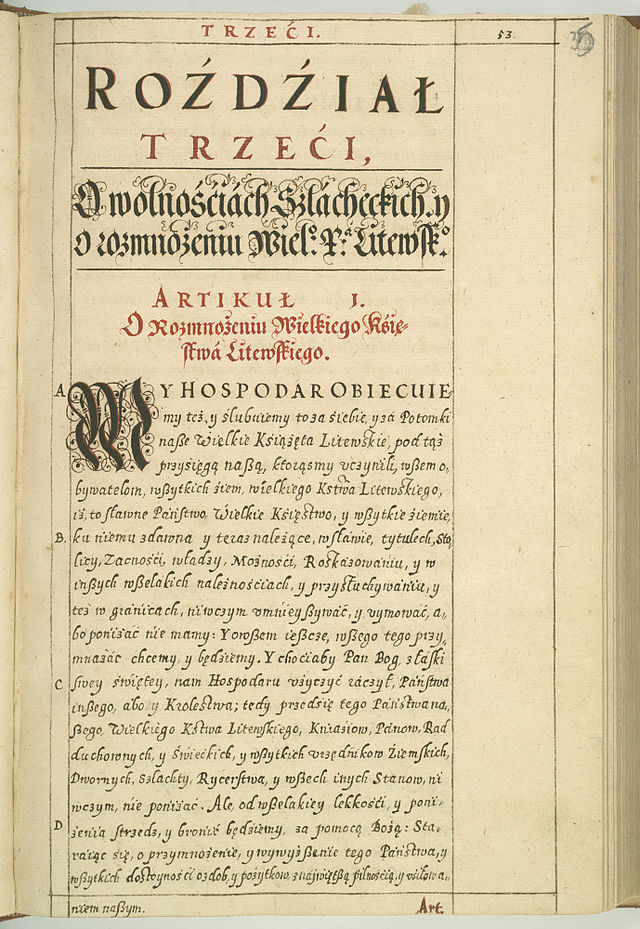 TRZEĆI. 53.
ROŹDŹIAŁ
TRZEĆI,
O wolnośćiách Szlácheckich. y
o rozmnożeniu Wielo. Xa. Litewsko.
ARTIKUŁ I.
O Rozmnożeniu Wielkiego Księ-
stwá Litewskiego.
A WY HOSPODAR OBIECUIE
my też, y ślubuiemy to za śiebie, y zá Potomki
naße Wielkie Kśiążęta Litewskie, pod tąż
przyśięgą naßą, ktorąsmy vczynili, wßem o-
bywatelom, wßytkich źiem, wielkiego Kstwa Litewskiego,
iż, to sławne Páństwo, Wielkie Kśięstwo, y wßytkie źiemie,
B. ku niemu zdawna y teraz należące, w sławie, tytulech, Sto
licy, Zacnośći, władzy, Możnośći, Roskázowaniu, y w
inßych wßelakich należnośćiach, y przysłuchywániu, y
też w gránicach, niwczym vmnieyßywáć, y vymowáć, a-
bo poniżáć nie mamy: Y owßem ießcze, wßego tego przy-
mnażáć chcemy, y będźiemy. Y choćiaby Pan Bog, z łáski
C swey świętey, nam Hospodaru vżyczyć ráczył, Páństwa
inßego, abo y Krolestwa; tedy przedśię tego Páństwa na-
ßego, Wielkiego Kstwa Litewskiego, Kniaźiow, Pánow, Rad
duchownych, y świeckich, y wßytkich vrzędnikow Źiemskich,
Dwornych, szláchty, Rycerstwa, y wßech inych Stanow, ni
wczym, nie poniżáć. Ale, od wßelakiey lekkośći, y poni-
D żenia strzedz, y bronić będźiemy, za pomocą Bożą: Sta-
raiąc śię, o przymnożenie, y wywyżßenie tego Páństwa, y
wßytkich dostoynośći ozdob, y pożytkow, z naywiętßą pilnośćią, y vśilowa-
niem naßym. Art.